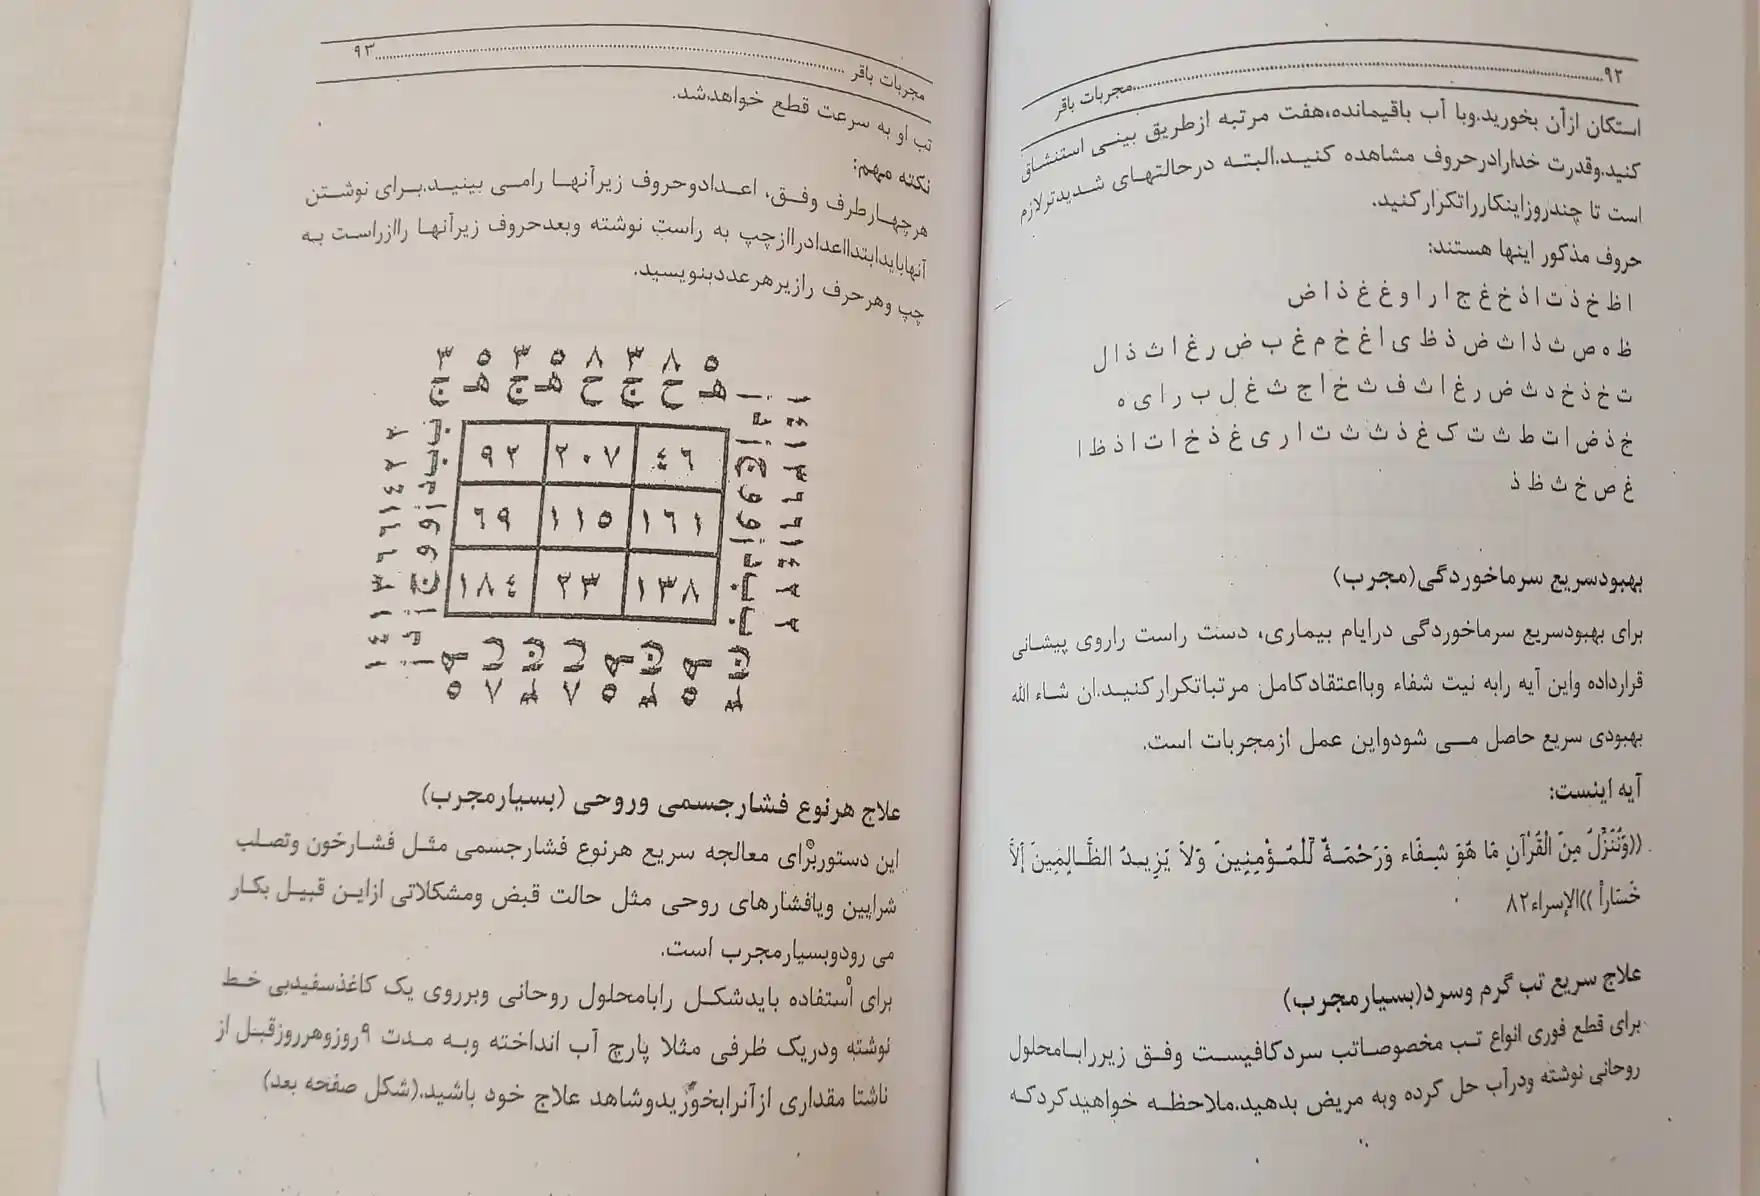 ۹۲..........مجربات باقر
استکان ازآن بخورید.وبا آب باقیمانده،هفت مرتبه ازطریق بینی استنشاق
کنید.وقدرت خدارادرحروف مشاهده کنید.البته درحالتهای شدیدترلازم
است تا چندروزاینکارراتکرارکنید.
حروف مذکور اینها هستند:
ا ظ خ ذ ت ا ذ خ غ ج ا ر ا و غ غ ذ ا ض
ظ ه ص ث ذ ا ث ض ذ ظ ی ا غ خ م غ ب ض ر غ ا ث ذ ا ل
ت خ ذ خ د ث ض ر غ ا ث ف ث خ ا ج ث غ ل ب ر ا ی ه
خ ذ ض ا ت ط ث ت ک غ ذ ث ث ت ا ر ی غ ذ خ ا ت ا ذ ظ ا
غ ص خ ث ظ ذ
بهبودسریع سرماخوردگی(مجرب)
برای بهبودسریع سرماخوردگی درایام بیماری، دست راست راروی پیشانی
قرارداده واین آیه رابه نیت شفاء وبااعتقادکامل مرتباتکرارکنید.ان شاء الله
بهبودی سریع حاصل می شودواین عمل ازمجربات است.
آیه اینست:
((وَنُنَزِّلُ مِنَ الْقُرْآنِ مَا هُوَ شِفَاء وَرَحْمَةٌ لِّلْمُؤْمِنِينَ وَلاَ يَزِيدُ الظَّالِمِينَ إَلاَّ
خَسَاراً ))الإسراء۸۲
علاج سریع تب گرم وسرد(بسیارمجرب)
برای قطع فوری انواع تب مخصوصاتب سردکافیست وفق زیررابامحلول
روحانی نوشته ودرآب حل کرده وبه مریض بدهید.ملاحظه خواهیدکردکه
مجربات باقر ..........۹۳
تب او به سرعت قطع خواهدشد.
نکته مهم:
هرچهارطرف وفق، اعدادوحروف زیرآنها رامی بینید.برای نوشتن
آنهابایدابتدااعدادراازچپ به راست نوشته وبعدحروف زیرآنها راازراست به
چپ وهرحرف رازیرهرعددبنویسید.
۳ ٥ ۳ ٥ ۸ ۳ ۸ ٥
ج هـ ج هـ ح ج ح هـ
۹۲ ۲۰۷ ٤٦
٦۹ ۱۱٥ ۱٦۱
۱۸٤ ۲۳ ۱۳۸
علاج هرنوع فشارجسمی وروحی (بسیارمجرب)
این دستوربرای معالجه سریع هرنوع فشارجسمی مثل فشارخون وتصلب
شرایین ویافشارهای روحی مثل حالت قبض ومشکلاتی ازاین قبیل بکار
می رودوبسیارمجرب است.
برای استفاده بایدشکل رابامحلول روحانی وبرروی یک کاغذسفیدبی خط
نوشته ودریک ظرفی مثلا پارچ آب انداخته وبه مدت ۹روزوهرروزقبل از
ناشتا مقداری ازآنرابخوریدوشاهد علاج خود باشید.(شکل صفحه بعد)